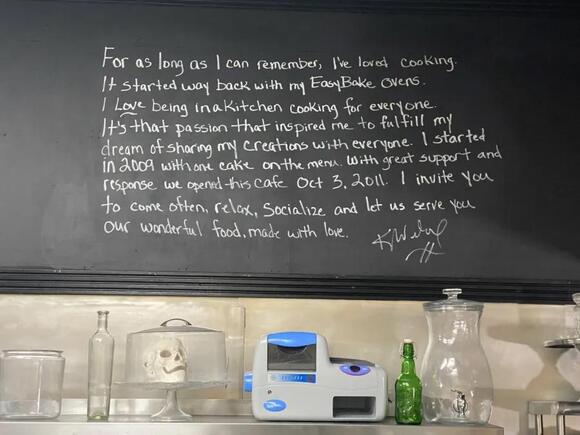 For as long as I can remember, I've loved cooking.
It started way back with my EasyBake Ovens.
I Love being in a Kitchen cooking for everyone.
It's that passion that inspired me to fulfill my
dream of sharing my creations with everyone. I started
in 2009 with one cake on the menu. With great support and
response we opened this cafe Oct 3, 2011. I invite you
to come often, relax, Socialize and let us serve you
our wonderful food, made with love.